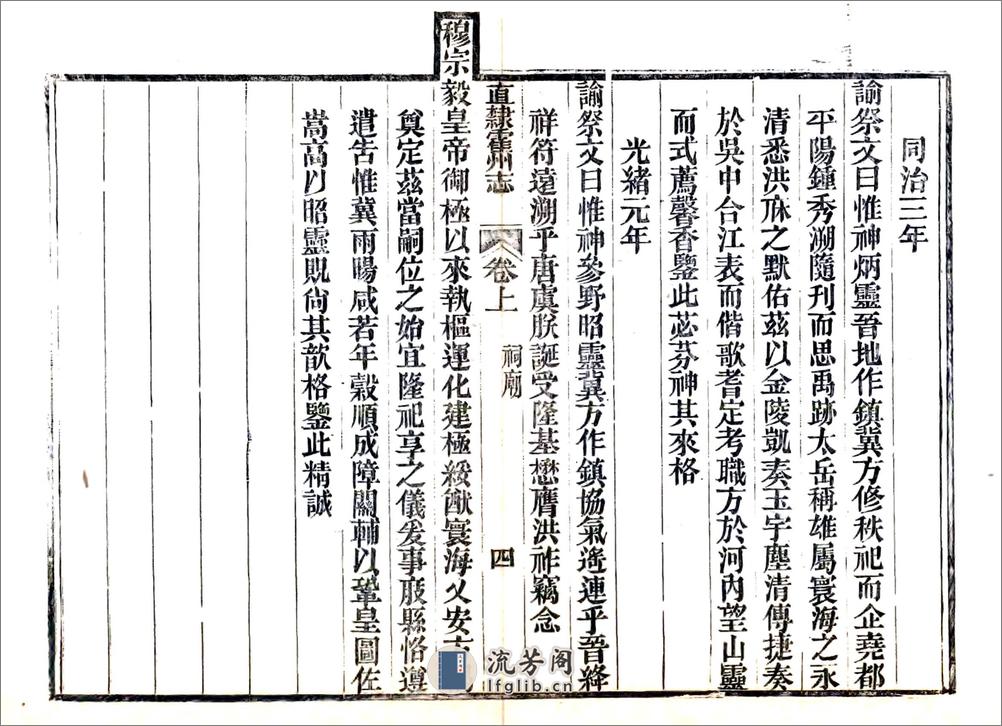 同治三年
諭祭文曰惟神炳靈晉地作鎮冀方修秩祀而企堯都
平陽鍾秀溯隨刊而思禹跡太岳稱雄屬寰海之永
清悉洪庥之默佑茲以金陵凱奏玉宇塵清傳捷奏
於吳中合江表而偕歌耆定考職方於河內望山靈
而式薦馨香鑒此苾芬神其來格
光緒元年
諭祭文曰惟神參野昭靈冀方作鎮協氣遙連乎晉絳
祥符遠溯乎唐虞朕誕受隆基懋膺洪祚竊念
直隸霍州志
卷上
祠廟
四
穆宗毅皇帝御極以來執樞運化建極綏猷寰海乂安
奠定茲當嗣位之始宜隆祀享之儀爰事庪縣恪遵
遣告惟冀雨暘咸若年穀順成障關輔以鞏皇圖佐
嵩高以昭靈貺尙其歆格鑒此精誠
流芳阁
lfglib.cn